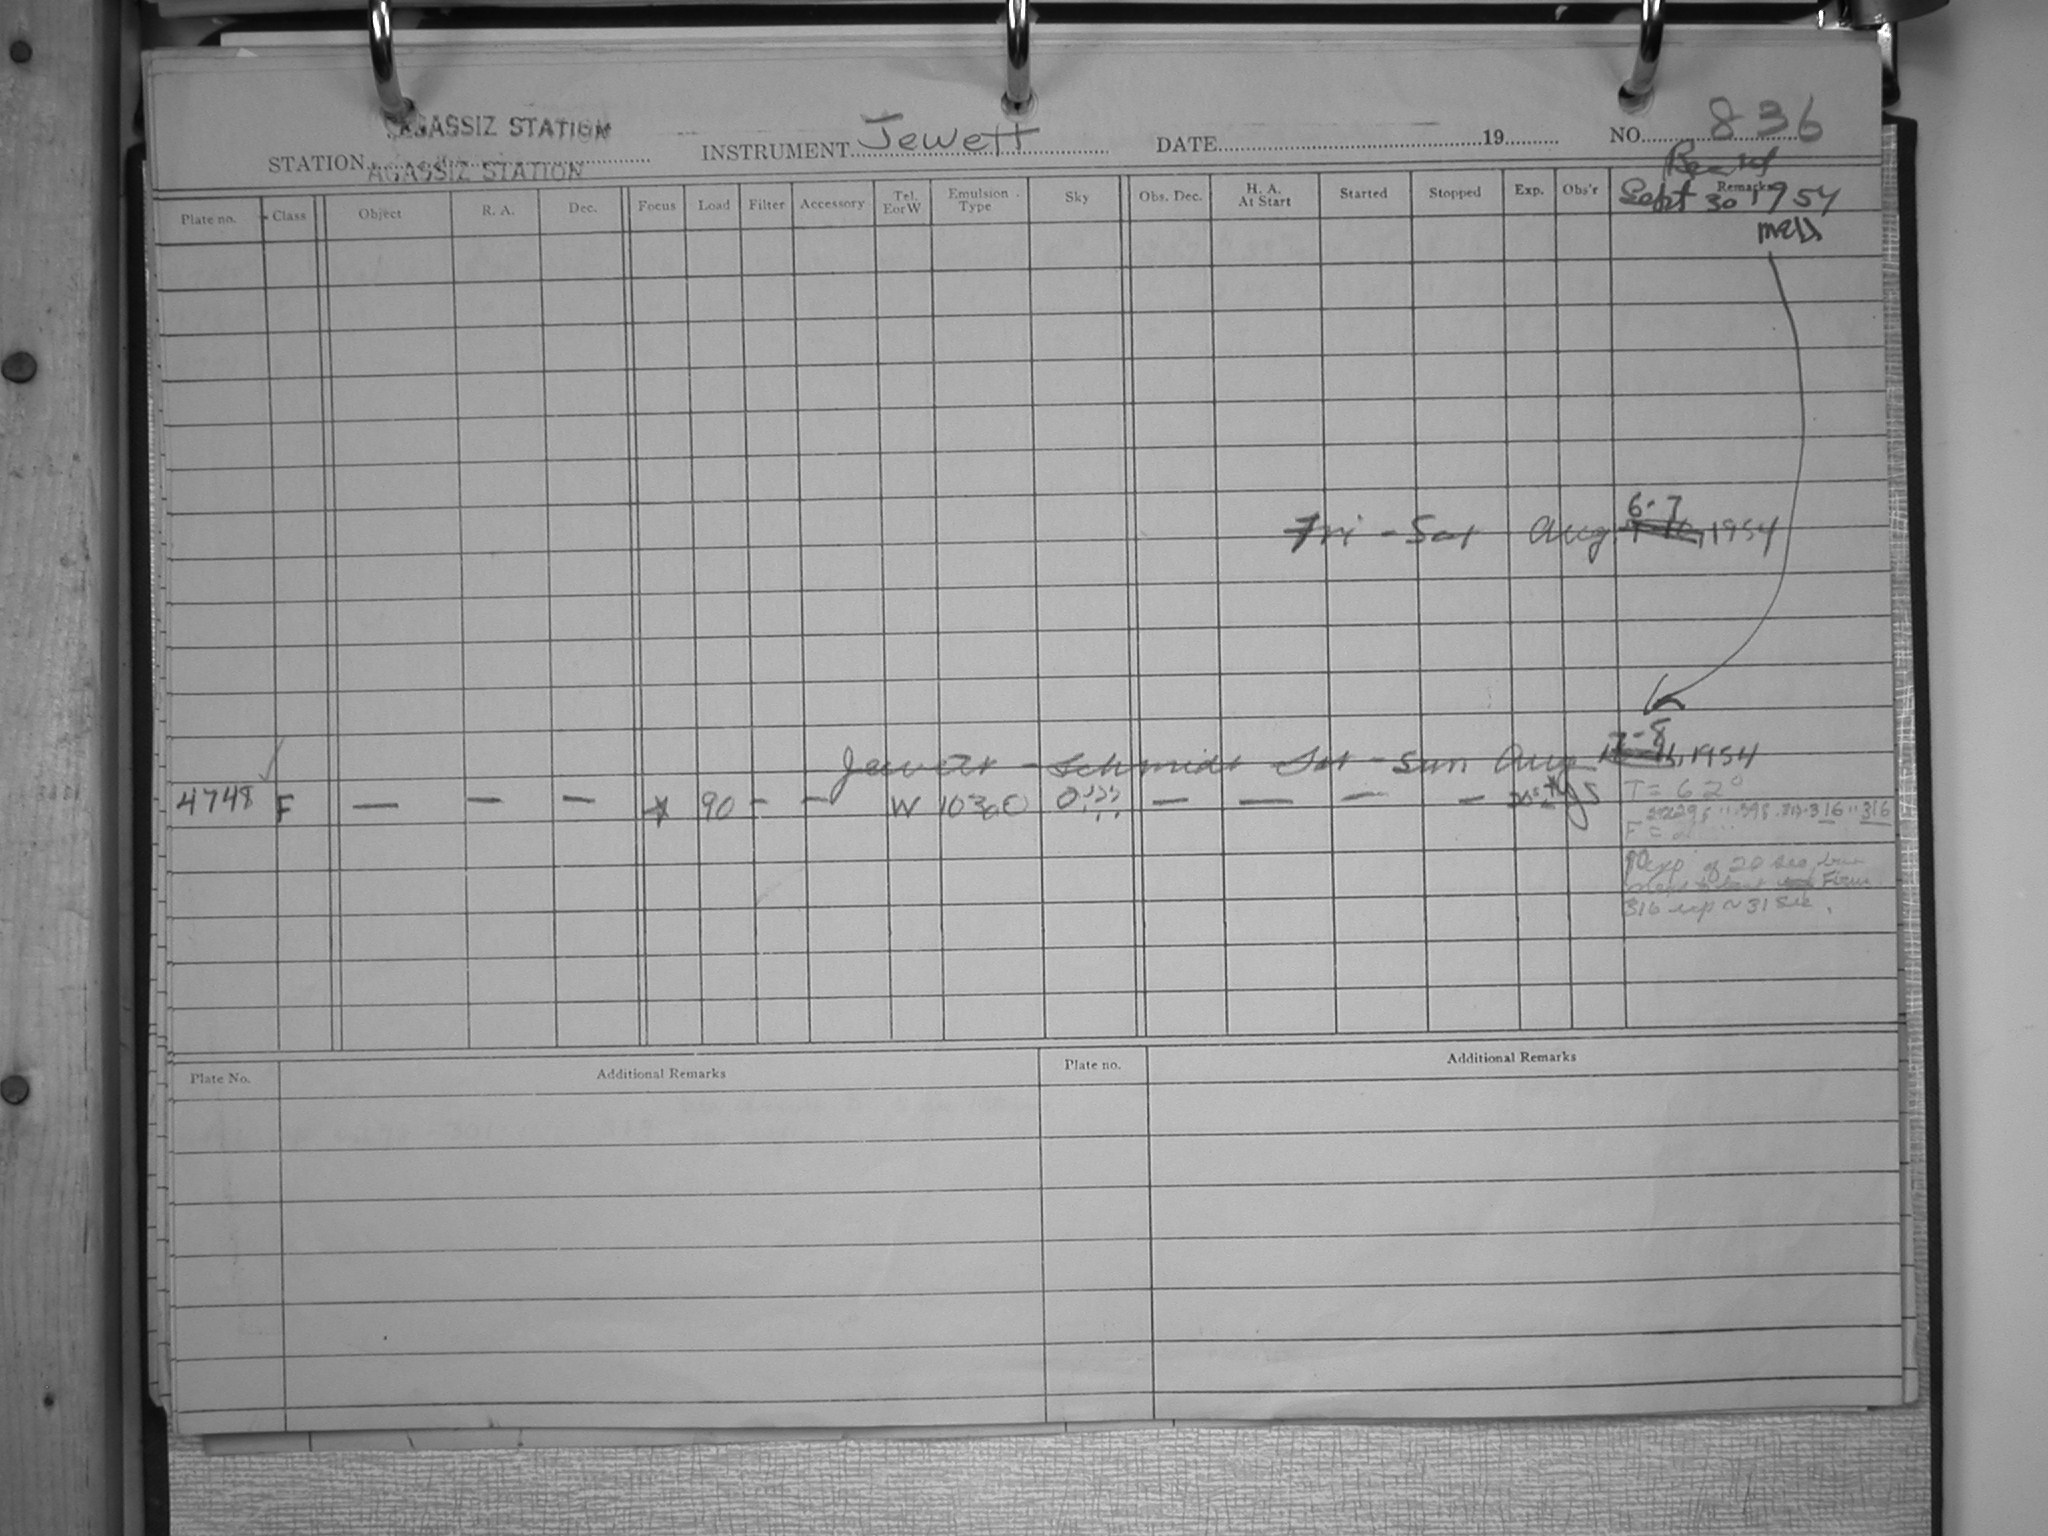 AGASSIZ STATION
STATION AGASSIZ STATION INSTRUMENT Jewett DATE 19 NO. 836
Plate no. Class Object R. A. Dec. Focus Load Filter Accessory Tel. E or W Emulsion Type Sky Obs. Dec. H. A. At Start Started Stopped Exp. Obs'r Remarks
Sept 30 1954
6-7
Fri - Sat Aug 1954
7-8
Jewett - Schmidt Sat - Sun Aug 1954
4748 F — — — 90 - - W 103aO — — — —
T = 62°
F =
exp of 20 sec
316 exp ~ 31 sec.
Plate No. Additional Remarks Plate no. Additional Remarks